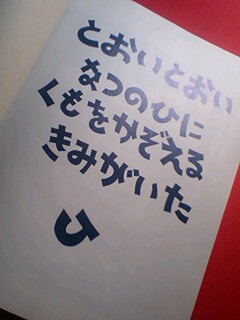 とおいとおい
なつのひに
くもをかぞえる
きみがいた